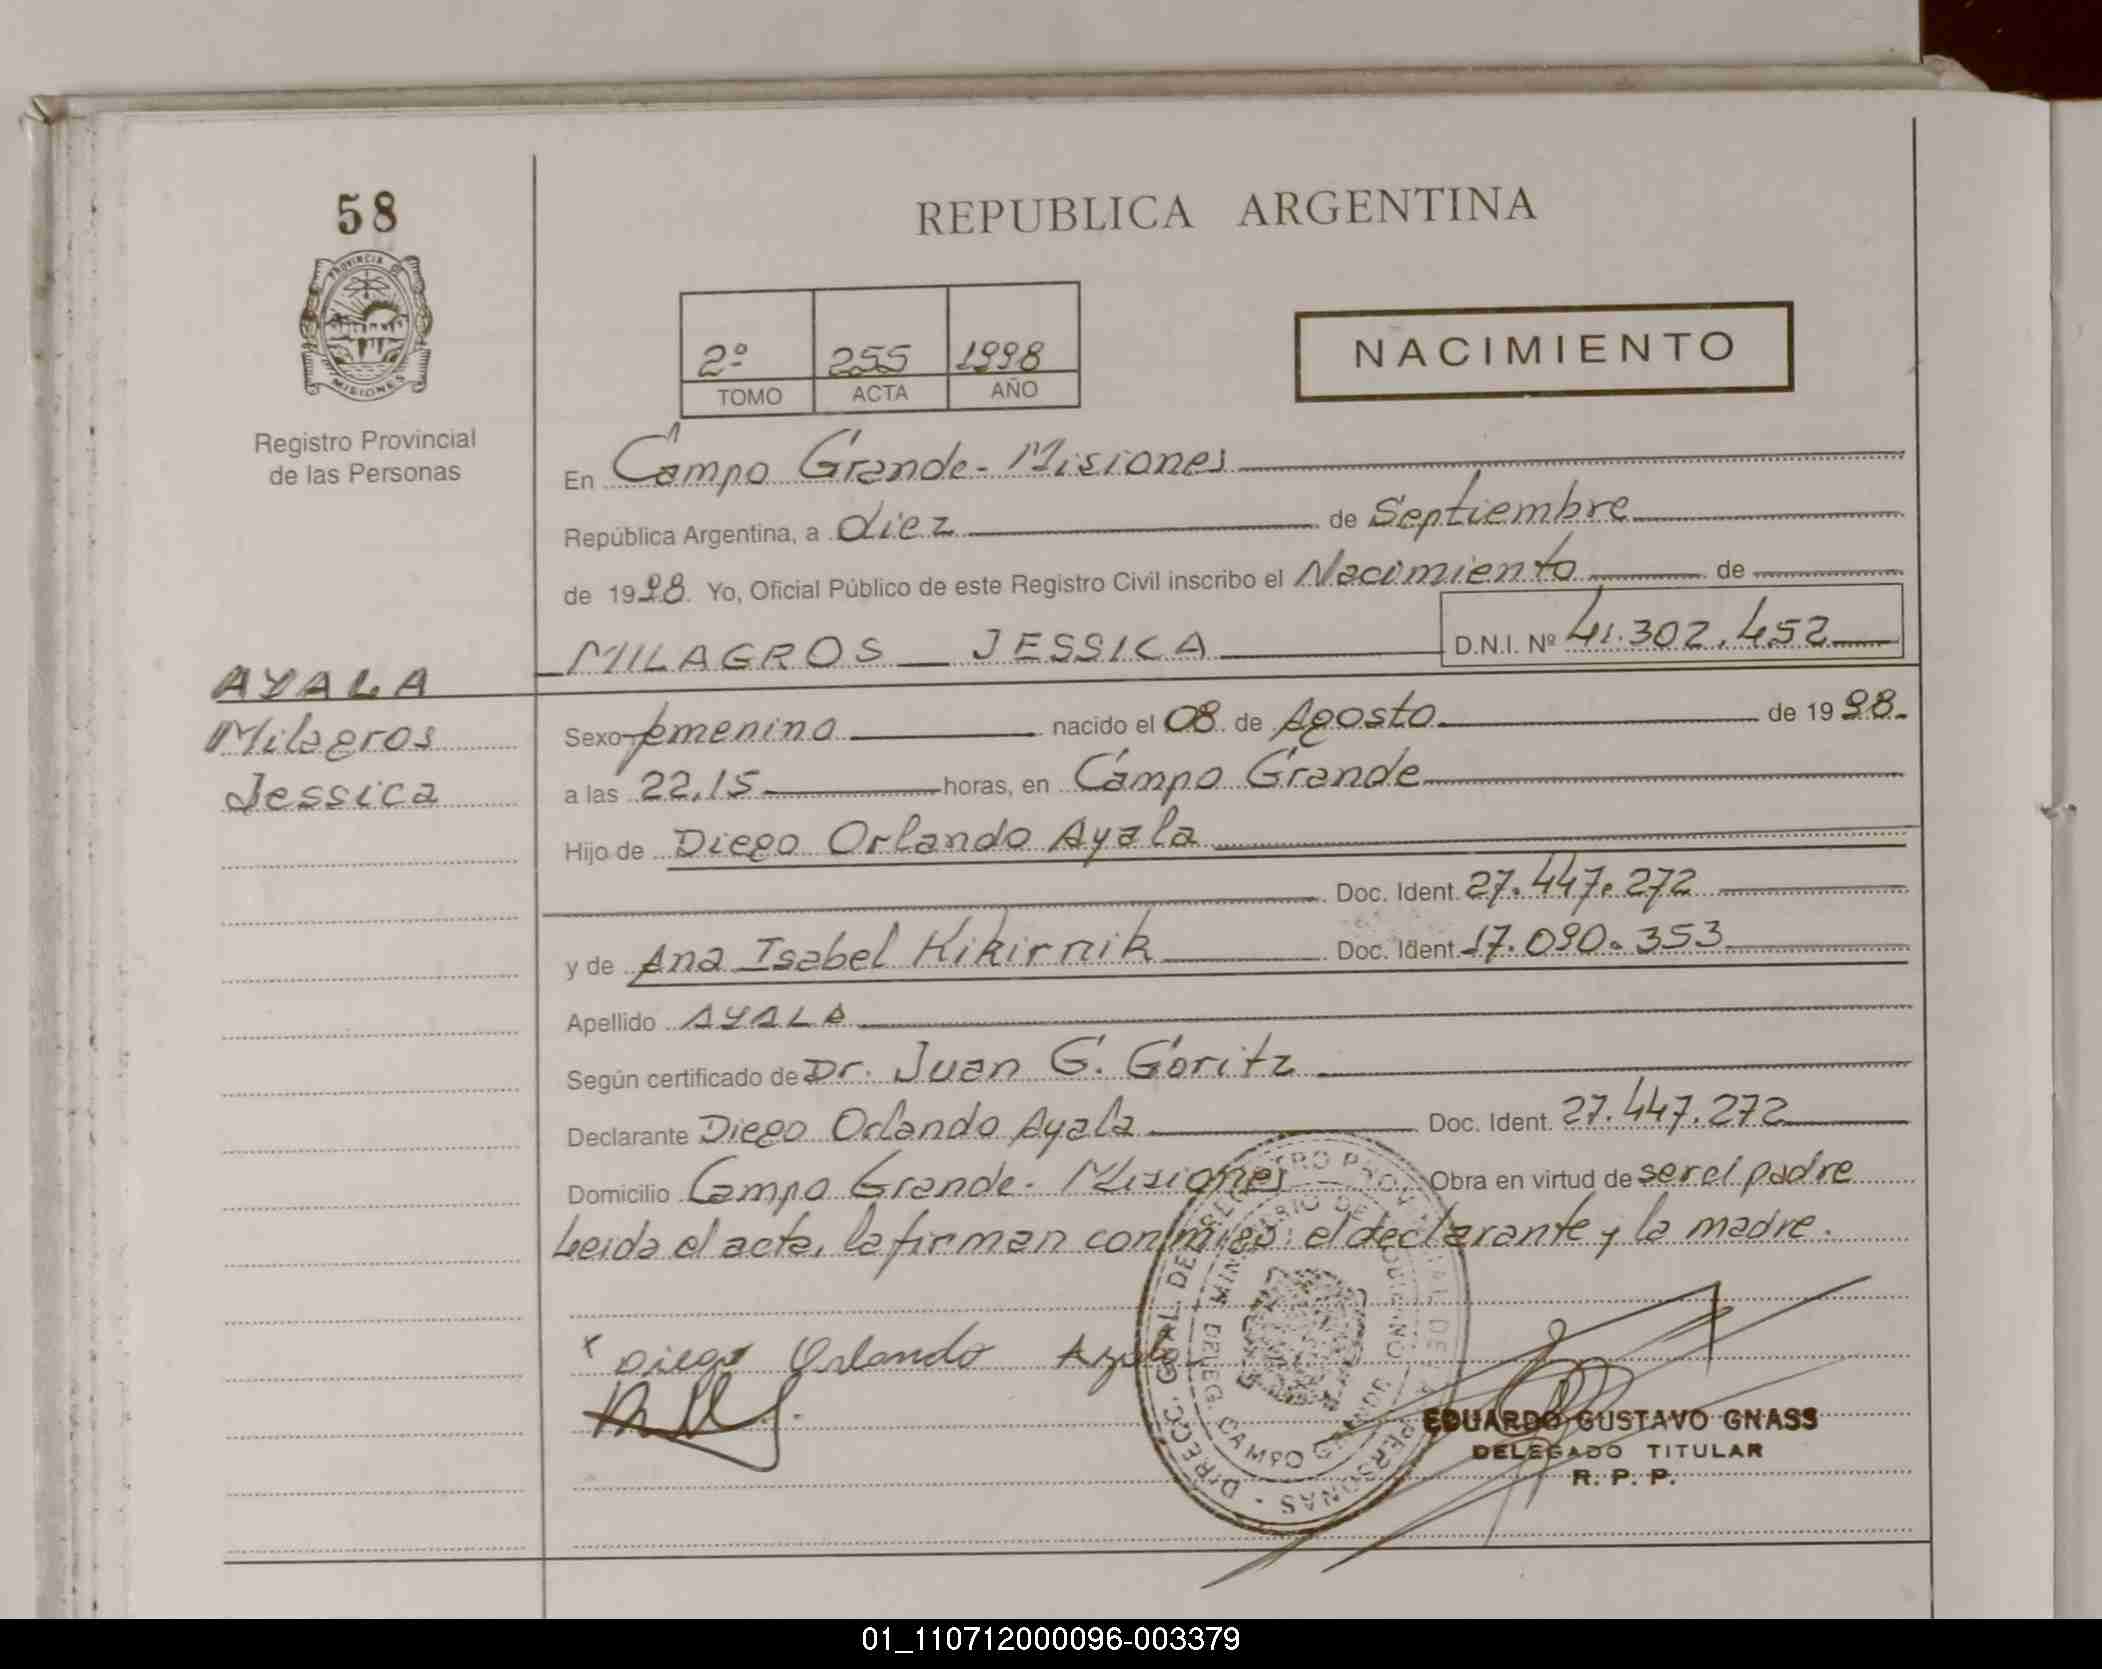 58
PROVINCIA DE
MISIONES
Registro Provincial
de las Personas
REPUBLICA ARGENTINA
2º 255 1998
TOMO ACTA AÑO
NACIMIENTO
En Campo Grande - Misiones
República Argentina, a diez de Septiembre
de 1998. Yo, Oficial Público de este Registro Civil inscribo el Nacimiento de
MILAGROS JESSICA D.N.I. Nº 41.302.452
AYALA
Milagros
Jessica
Sexo femenino nacido el 08 de Agosto de 1998.
a las 22,15 horas, en Campo Grande
Hijo de Diego Orlando Ayala
Doc. Ident. 27.447.272
y de Ana Isabel Kikirnik Doc. Ident. 17.090.353
Apellido AYALA
Según certificado de Dr. Juan G. Goritz
Declarante Diego Orlando Ayala Doc. Ident. 27.447.272
Domicilio Campo Grande - Misiones Obra en virtud de ser el padre
Leida el acta, la firman conmigo: el declarante y la madre.
x Diego Orlando Ayala
EDUARDO GUSTAVO GNASS
DELEGADO TITULAR
R. P. P.
01_110712000096-003379